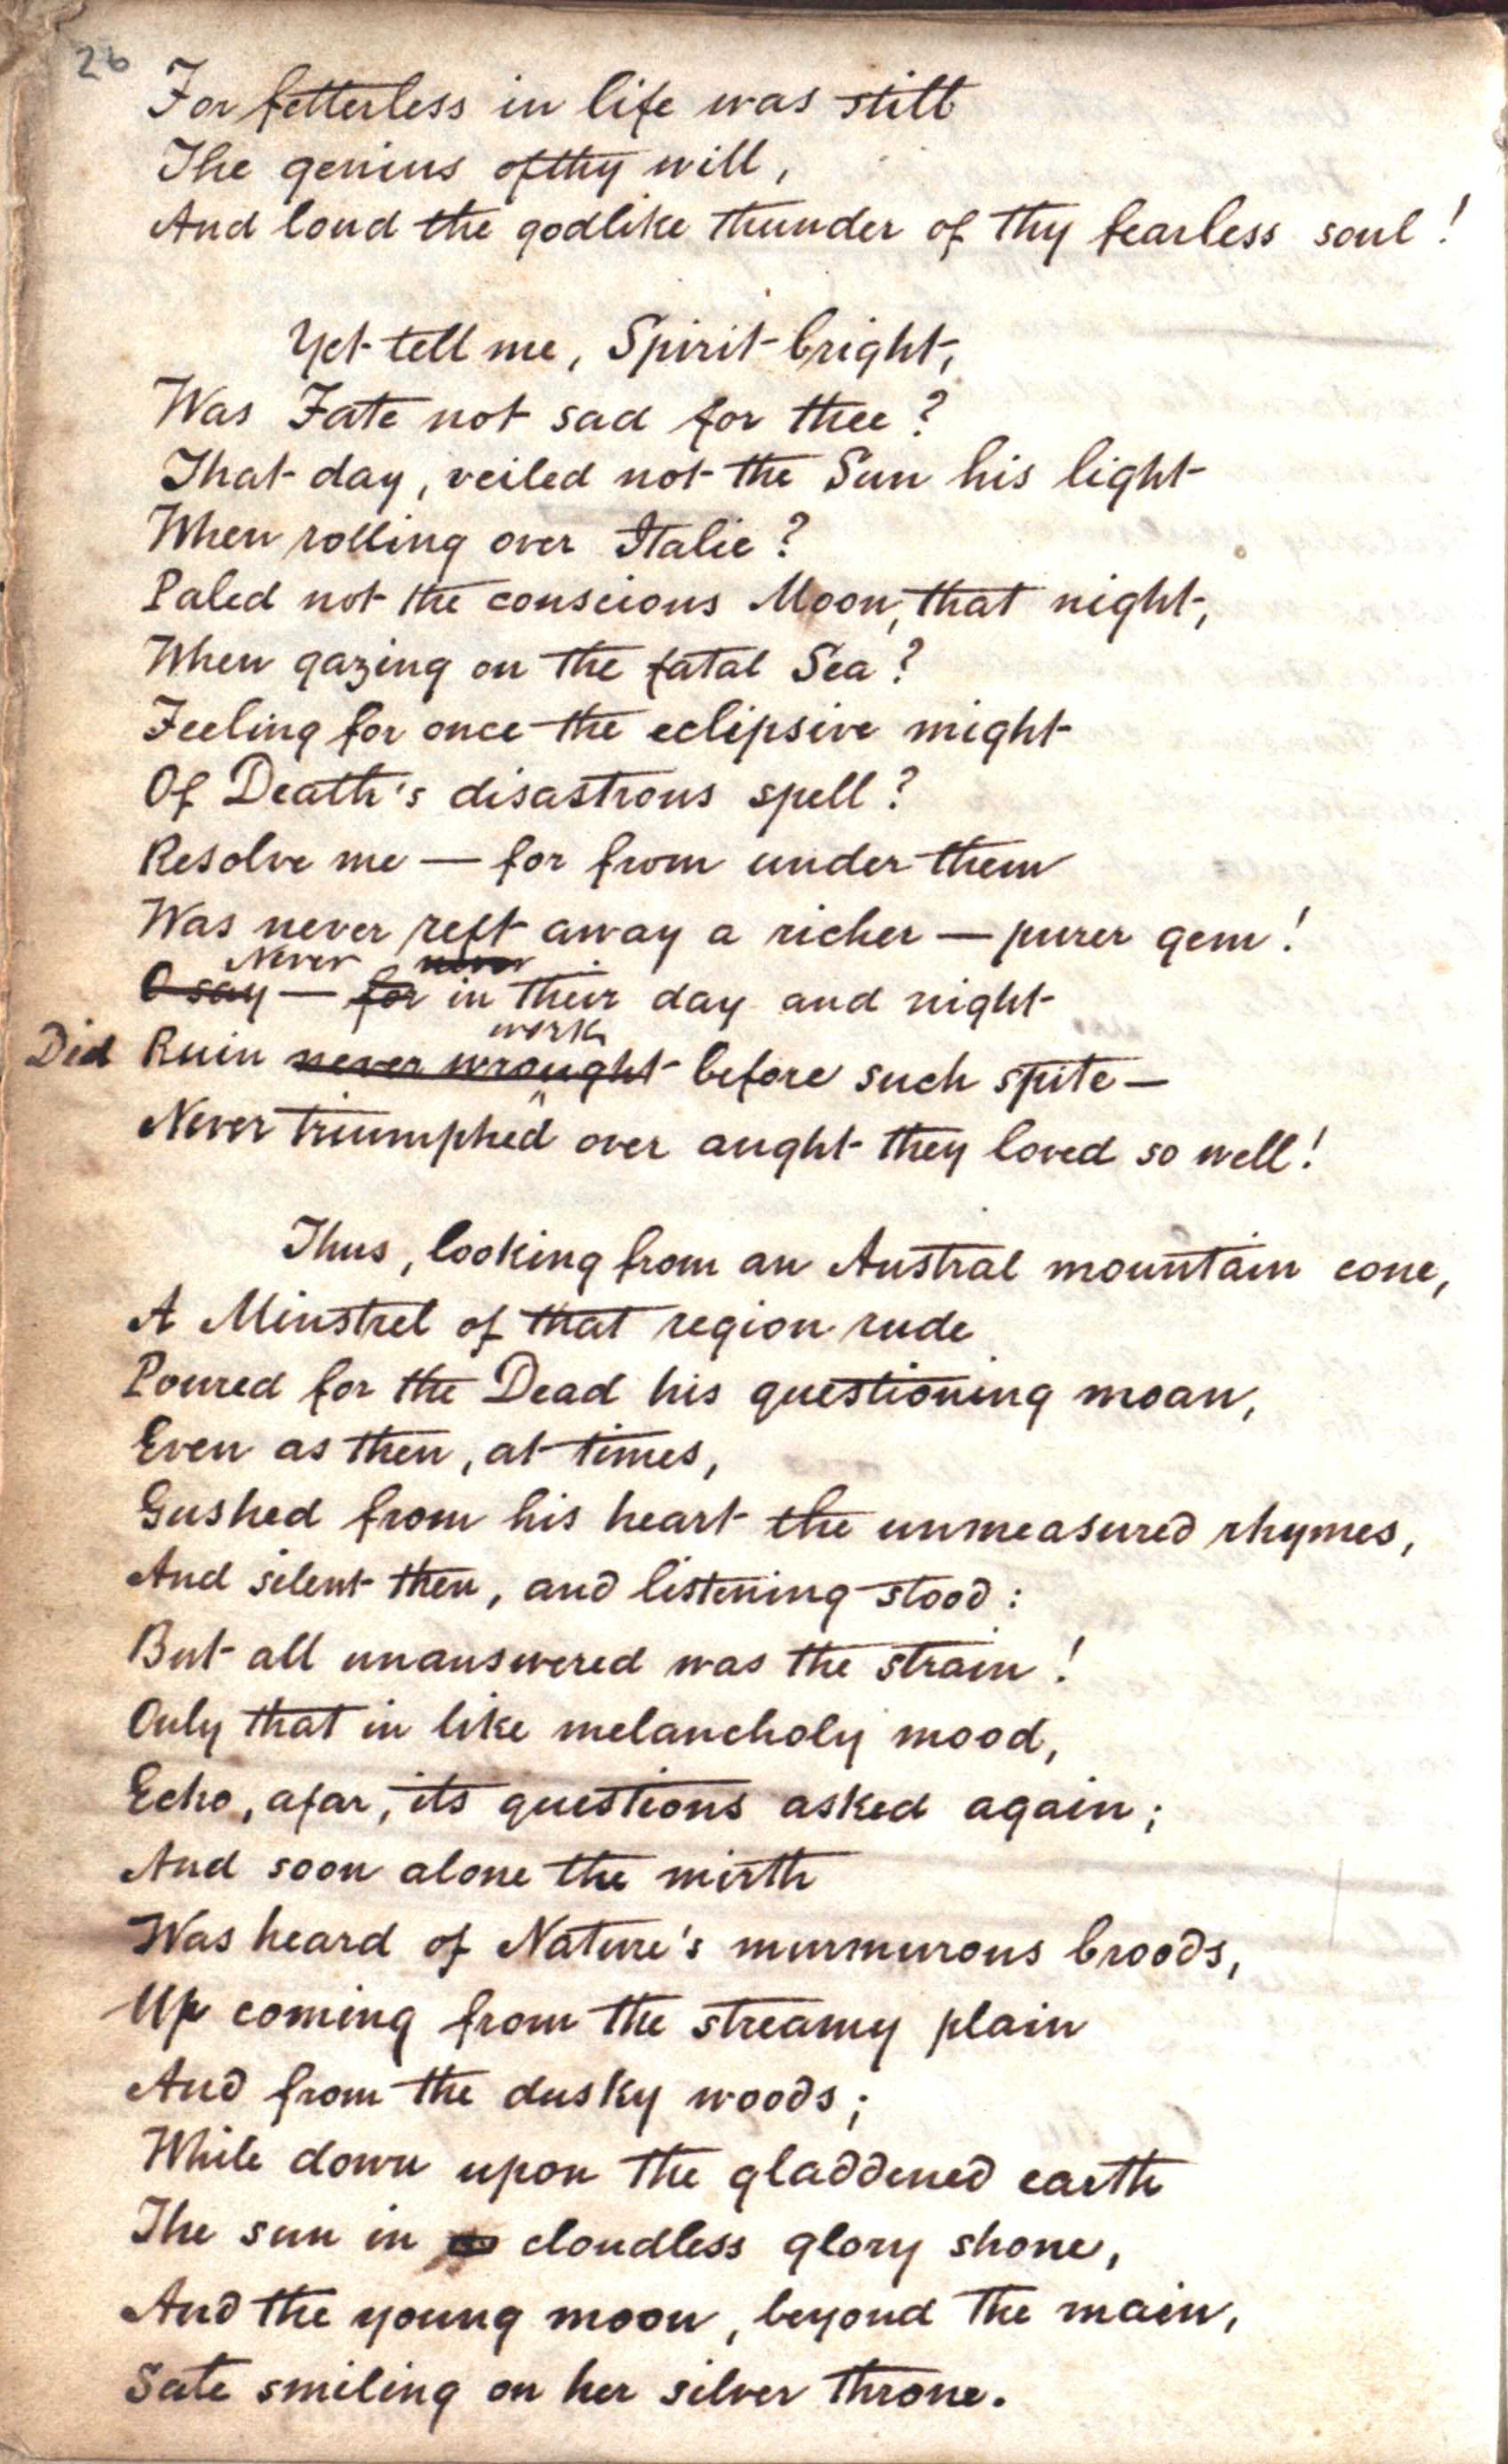 26
For fetterless in life was still
The genius of thy will,
And loud the godlike thunder of thy fearless soul!
Yet tell me, Spirit bright,
Was Fate not sad for thee?
That day, veiled not the Sun his light
When rolling over Italie?
Paled not the conscious Moon, that night,
When gazing on the fatal Sea?
Feeling for once the eclipsive might
Of Death's disastrous spell?
Resolve me — for from under them
Was never reft away a richer — purer gem!
Never never
O say — for in their day and night
work
Did Ruin never wrought before such spite —
Never triumphed over aught they loved so well!
Thus, looking from an Austral mountain cone,
A Minstrel of that region rude
Poured for the Dead his questioning moan,
Even as then, at times,
Gushed from his heart the unmeasured rhymes,
And silent then, and listening stood:
But all unanswered was the strain!
Only that in like melancholy mood,
Echo, afar, its questions asked again;
And soon alone the mirth
Was heard of Nature's murmurous broods,
Up coming from the streamy plain
And from the dusky woods;
While down upon the gladdened earth
The sun in cloudless glory shone,
And the young moon, beyond the main,
Sate smiling on her silver throne.